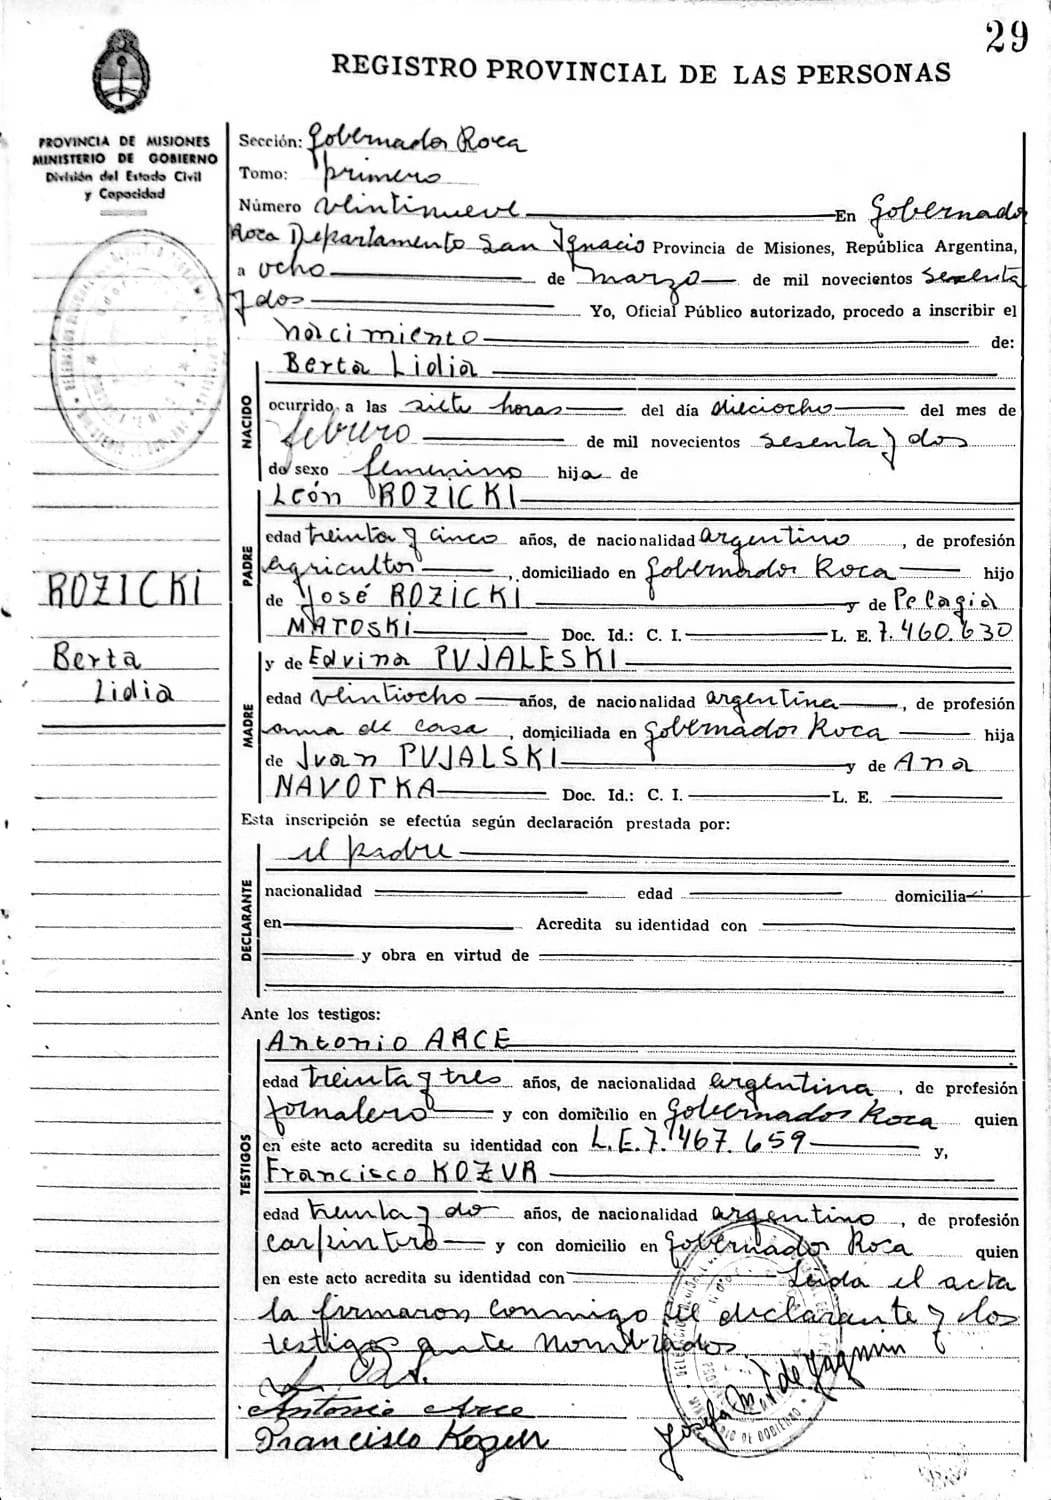 29
REGISTRO PROVINCIAL DE LAS PERSONAS
PROVINCIA DE MISIONES
MINISTERIO DE GOBIERNO
División del Estado Civil
y Capacidad
Sección: Gobernador Roca
Tomo: primero
Número veintinueve En Gobernador
Roca Departamento San Ignacio Provincia de Misiones, República Argentina,
a ocho de marzo de mil novecientos sesenta
y dos Yo, Oficial Público autorizado, procedo a inscribir el
nacimiento de:
Berta Lidia
NACIDO
ocurrido a las siete horas del día dieciocho del mes de
febrero de mil novecientos sesenta y dos
de sexo femenino hija de
León ROZICKI
PADRE
edad treinta y cinco años, de nacionalidad argentino, de profesión
agricultor, domiciliado en Gobernador Roca hijo
de José ROZICKI y de Pelagia
MAROSKI Doc. Id.: C. I. L. E. 7.460.630
ROZICKI
Berta
Lidia
y de Edvina PUJALESKI
MADRE
edad veintiocho años, de nacionalidad argentina, de profesión
ama de casa, domiciliada en Gobernador Roca hija
de Juan PUJALSKI y de Ana
NAVOTKA Doc. Id.: C. I. L. E.
Esta inscripción se efectúa según declaración prestada por:
el padre
DECLARANTE
nacionalidad edad domicilia
en Acredita su identidad con
y obra en virtud de
Ante los testigos:
Antonio ARCE
TESTIGOS
edad treinta y tres años, de nacionalidad argentina, de profesión
jornalero y con domicilio en Gobernador Roca quien
en este acto acredita su identidad con L.E.7.467.659 y,
Francisco KOZUR
edad treinta y do años, de nacionalidad argentino, de profesión
carpintero y con domicilio en Gobernador Roca quien
en este acto acredita su identidad con Leida el acta
la firmaron conmigo el declarante y los
testigos ante nombrados.
Antonio Arce
Francisco Kozur
Josefa de Yaqmin